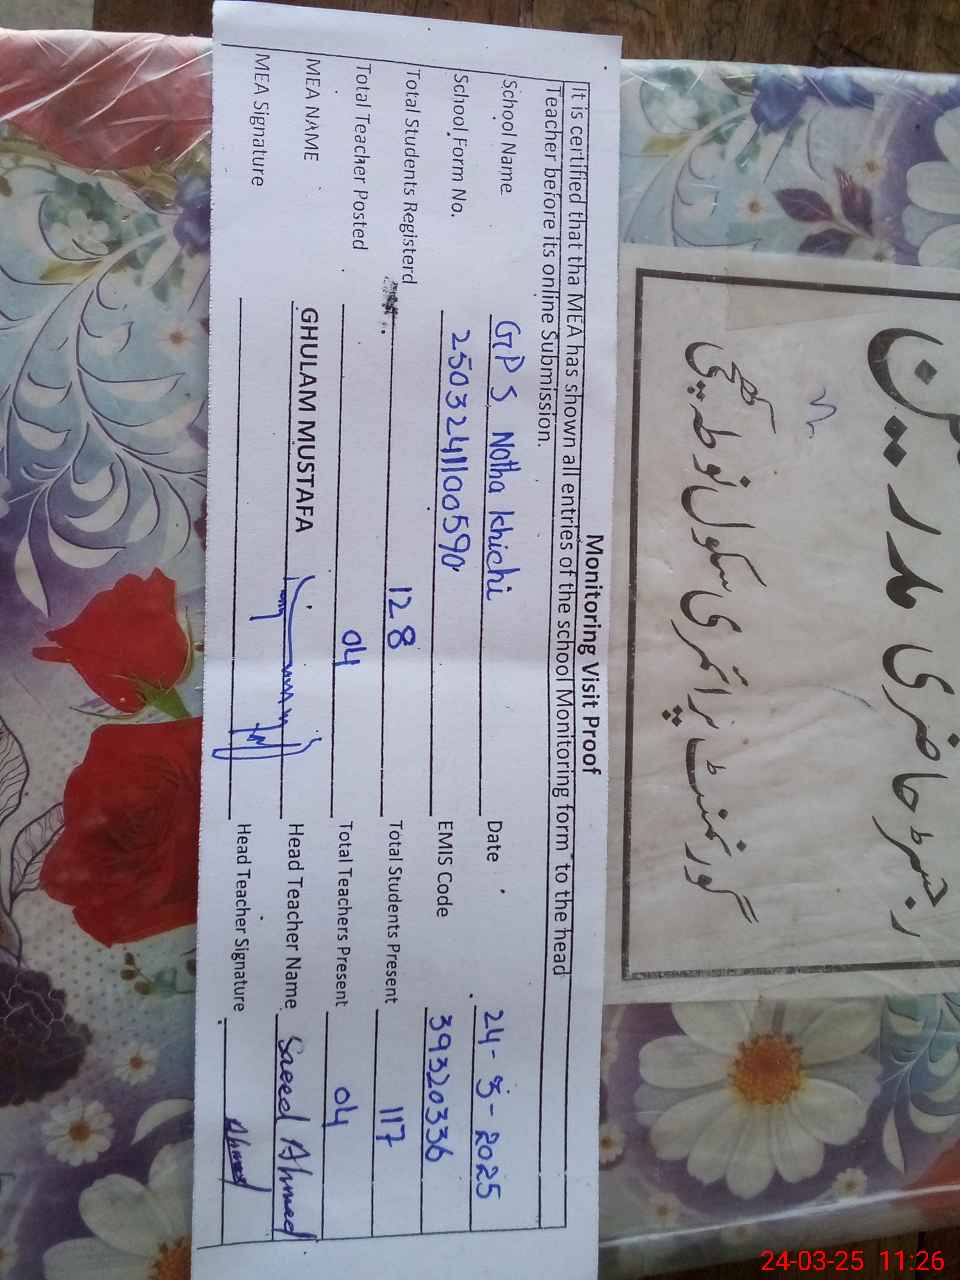 Monitoring Visit Proof
It is certified that tha MEA has shown all entries of the school Monitoring form" to the head
Teacher before its online Submission.
School Name GPS Notha Khichi Date 24-3-2025
School Form No. 2503241100590 EMIS Code 39320336
Total Students Registerd 128 Total Students Present 117
Total Teacher Posted 04 Total Teachers Present 04
MEA NAME GHULAM MUSTAFA Head Teacher Name Saeed Ahmed
MEA Signature Head Teacher Signature Ahmed
رجسٹر حاضری مدرسین
گورنمنٹ پرائمری سکول نوطہ کھچی
24-03-25 11:26